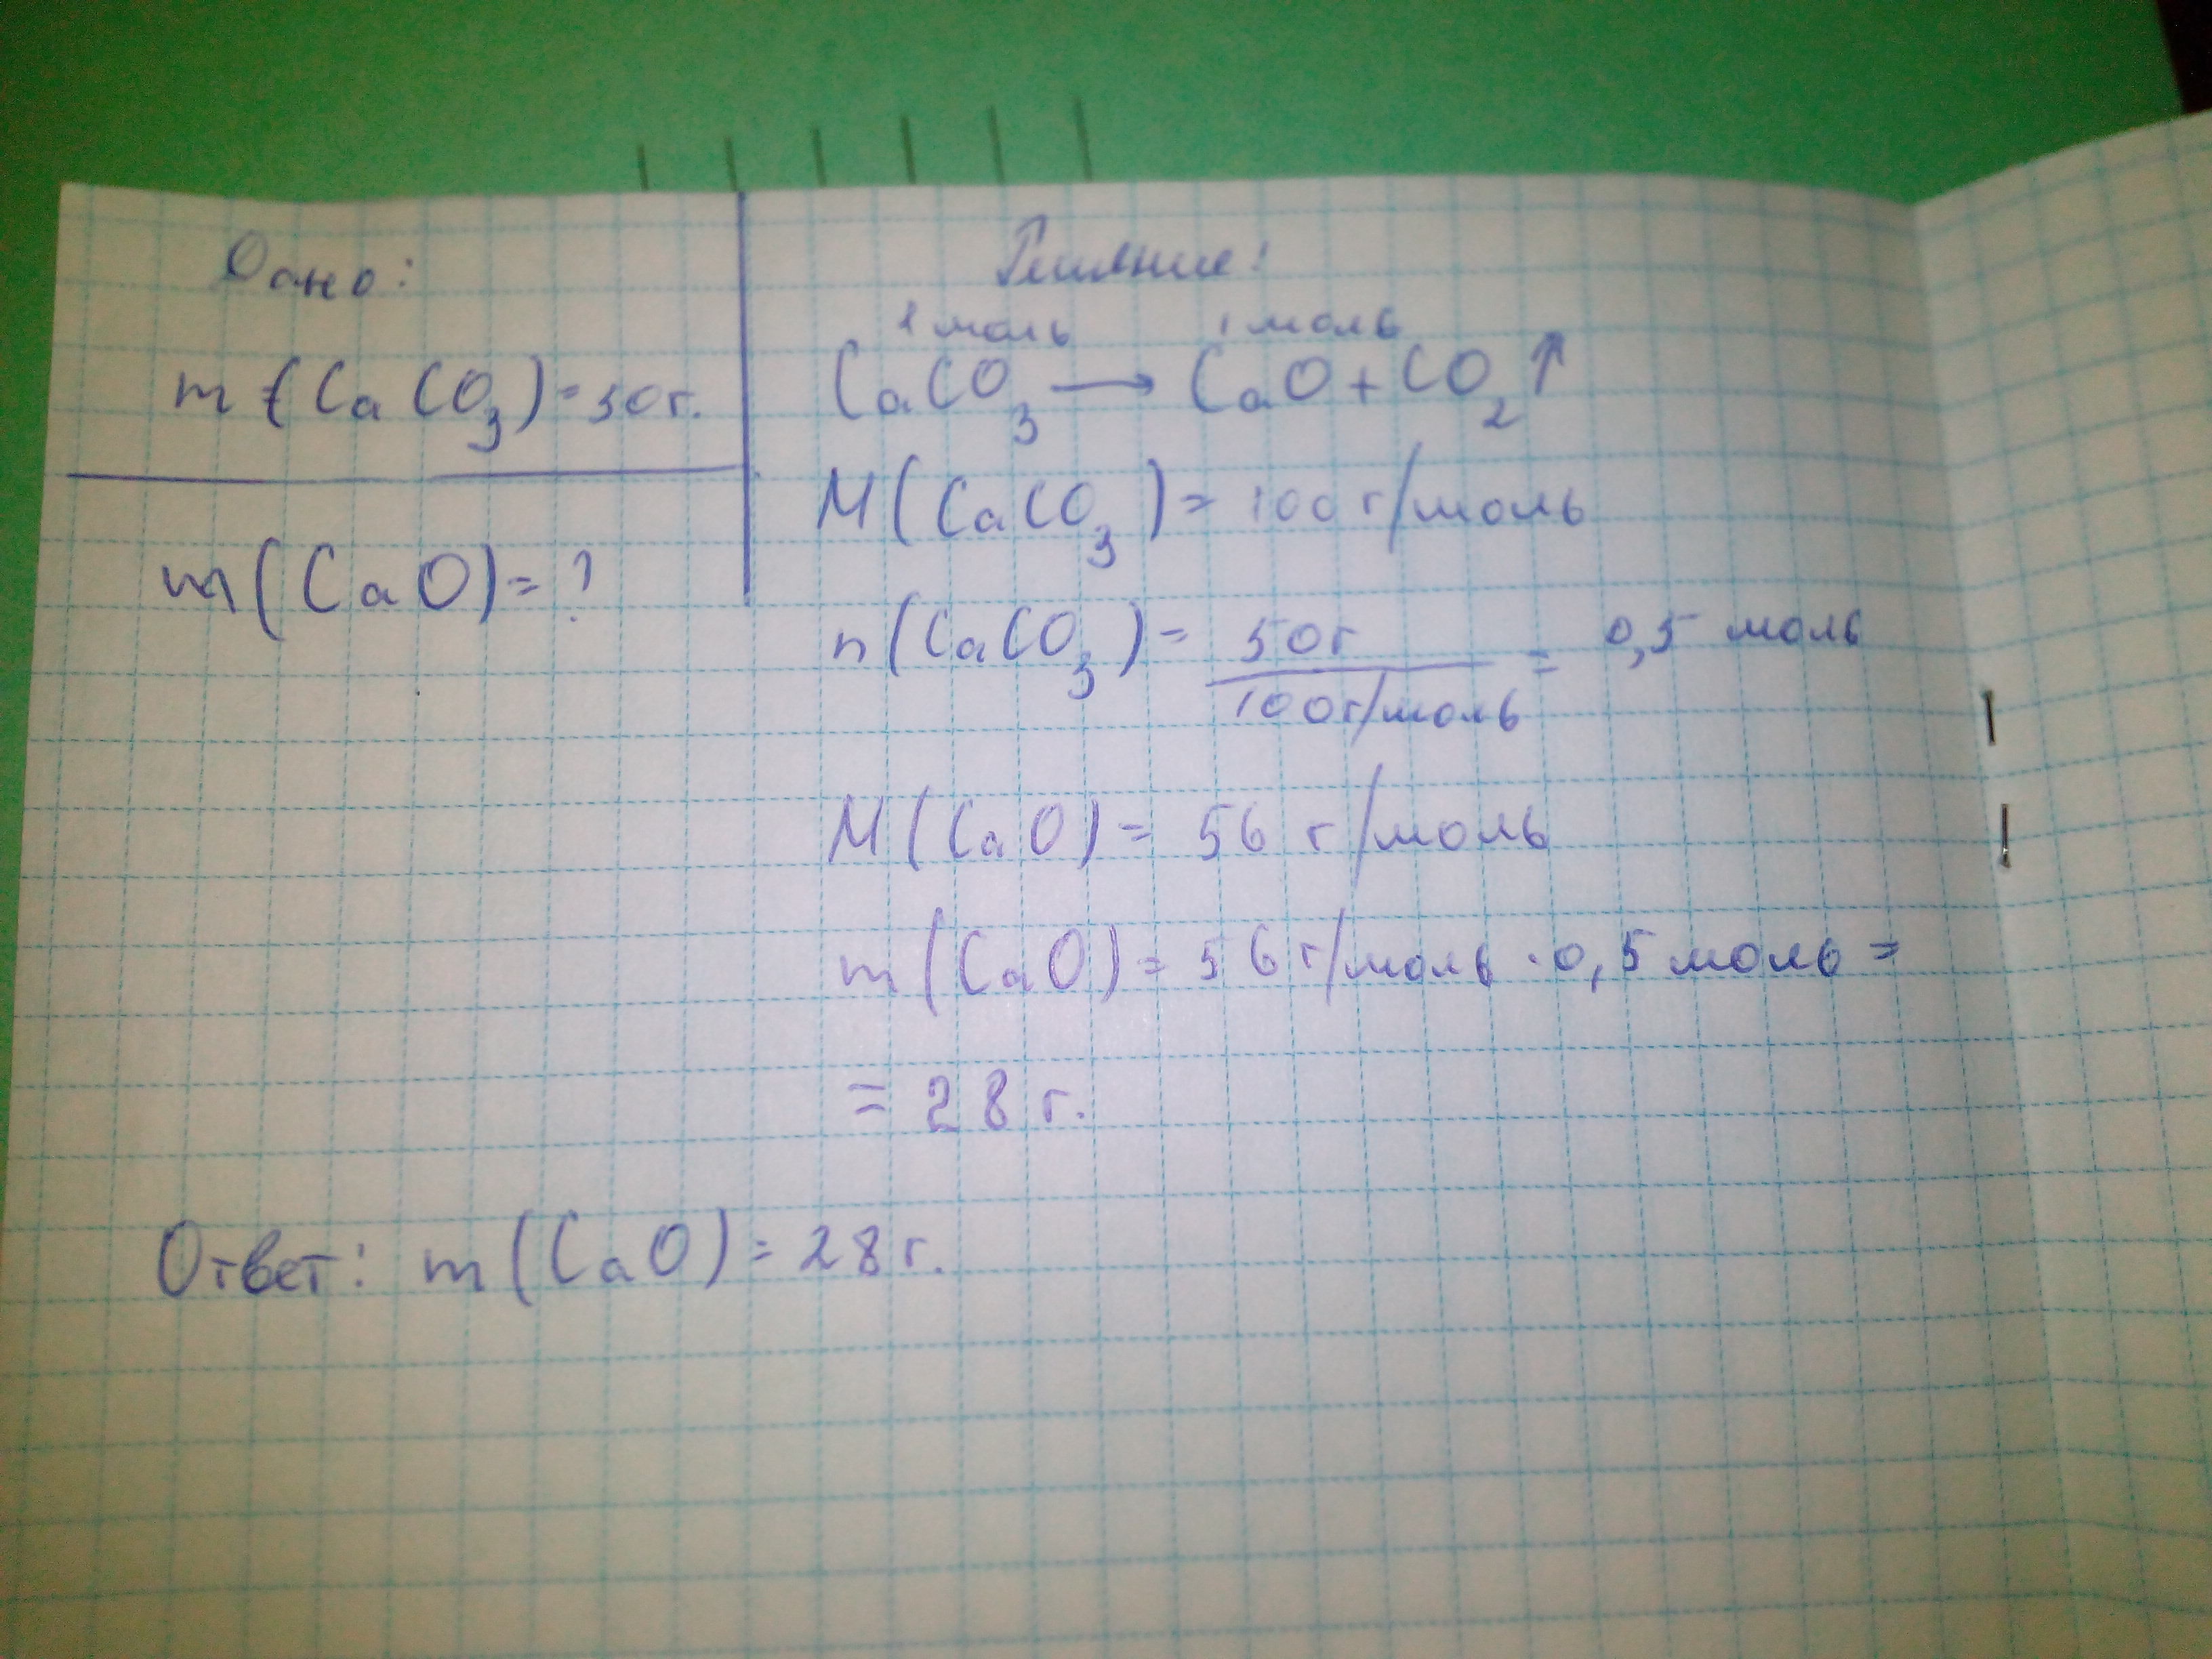 Дано:
m (CaCO₃) = 50 г.
m (CaO) = ?
Решение:
1 моль 1 моль
CaCO₃ → CaO + CO₂↑
M (CaCO₃) = 100 г/моль
n (CaCO₃) = 50 г / 100 г/моль = 0,5 моль
M (CaO) = 56 г/моль
m (CaO) = 56 г/моль · 0,5 моль =
= 28 г.
Ответ: m (CaO) = 28 г.